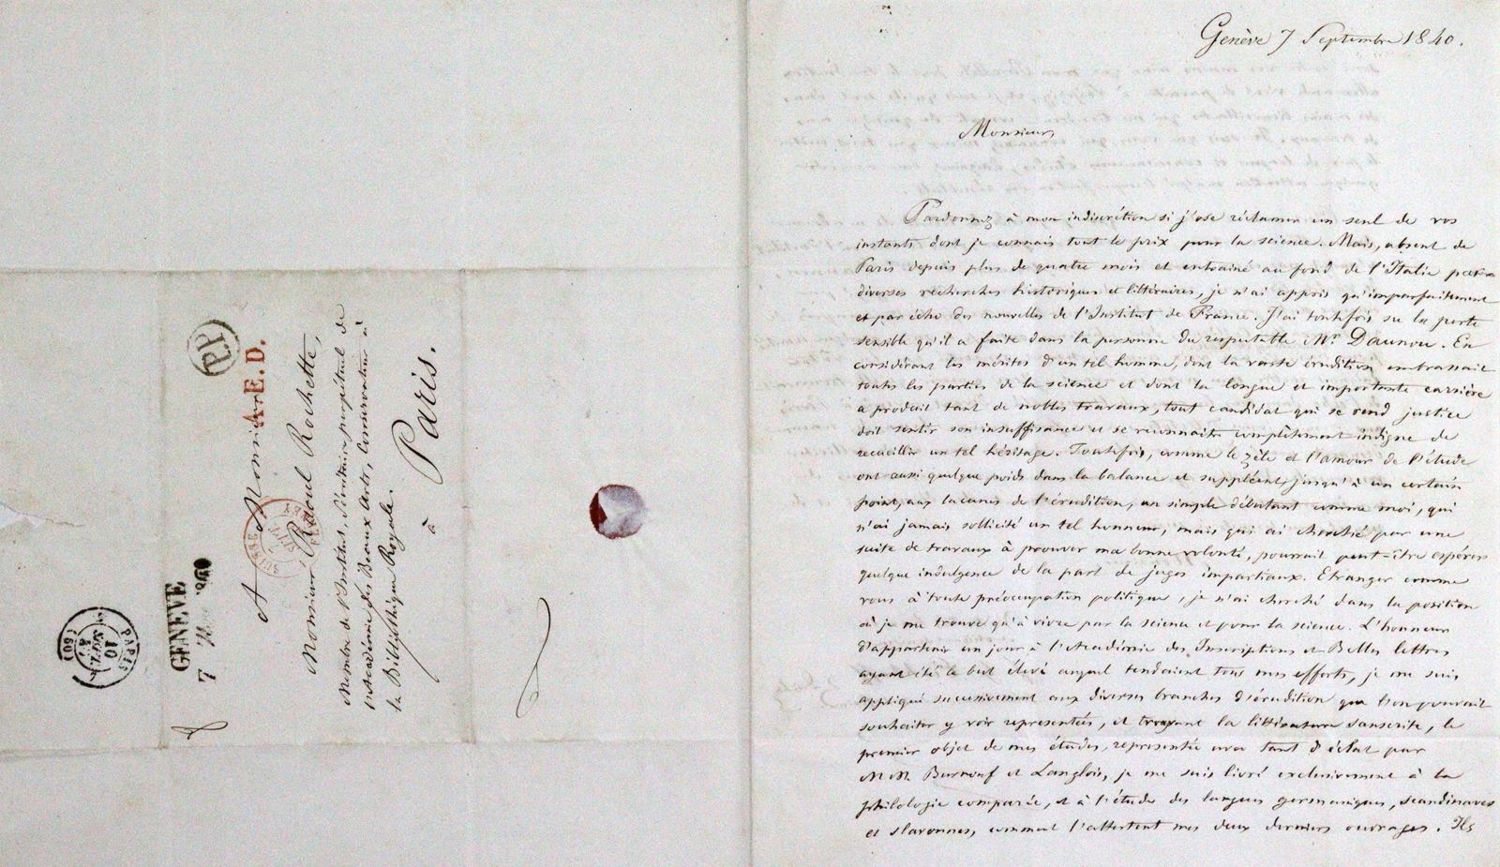 P.P.
A.E.D.
A Monsieur
Monsieur Raoul Rochette,
Membre de l'Institut, Secrétaire perpétuel de
l'Académie des Beaux Arts, Conservateur à
la Bibliothèque Royale.
à
Paris.
GENEVE
7
PARIS
10
SEPT
(60)
SUISSE
FERNEY
Genève 7 Septembre 1840.
Monsieur,
Pardonnez à mon indiscrétion si j'ose réclamer un seul de vos
instants dont je connais tout le prix pour la science. Mais, absent de
Paris depuis plus de quatre mois et entrainé au fond de l'Italie par
diverses recherches historiques et littéraires, je n'ai appris qu'imparfaitement
et par écho des nouvelles de l'Institut de France. J'ai toutefois su la perte
sensible qu'il a faite dans la personne du respectable Mr. Daunou. En
considérant les mérites d'un tel homme, dont la vaste érudition embrassait
toutes les parties de la science et dont la longue et importante carrière
a produit tant de nobles travaux, tout candidat qui se rend justice
doit sentir son insuffisance et se reconnaitre complètement indigne de
recueillir un tel héritage. Toutefois, comme le zèle et l'amour de l'étude
ont aussi quelque poids dans la balance et suppléent, jusqu'à un certain
point, aux lacunes de l'érudition, un simple débutant comme moi, qui
n'ai jamais sollicité un tel honneur, mais qui ai cherché par une
suite de travaux à prouver ma bonne volonté, pourrait peut-être espérer
quelque indulgence de la part de juges impartiaux. Etranger comme
vous à toute préoccupation politique, je n'ai cherché dans la position
où je me trouve qu'à vivre par la science et pour la science. L'honneur
d'appartenir un jour à l'Académie des Inscriptions et Belles lettres
ayant été le but élevé auquel tendaient tous mes efforts, je me suis
appliqué successivement aux diverses branches d'érudition que l'on pouvait
souhaiter y voir représentées, et trouvant la littérature sanscrite, le
premier objet de mes études, représentée avec tant d'éclat par
MM Burnouf et Langlois, je me suis livré exclusivement à la
philologie comparée, et à l'étude des langues germaniques, scandinaves
et slavonnes, comme l'attestent mes deux derniers ouvrages. Ils